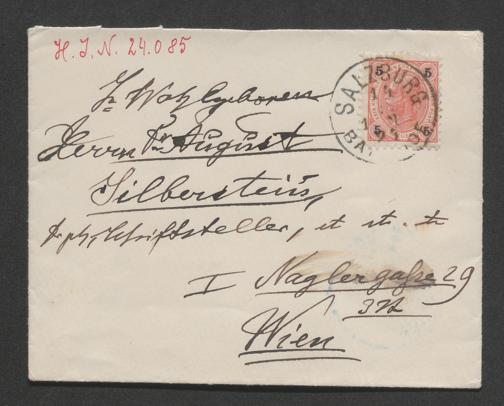 H. I. N. 24.085
5 5
SALZBURG
5 5
Sr Wohlgeboren
Herrn Dr August
Silberstein,
Schriftsteller, etc. etc. etc
I Naglergaße 29
3 St
Wien